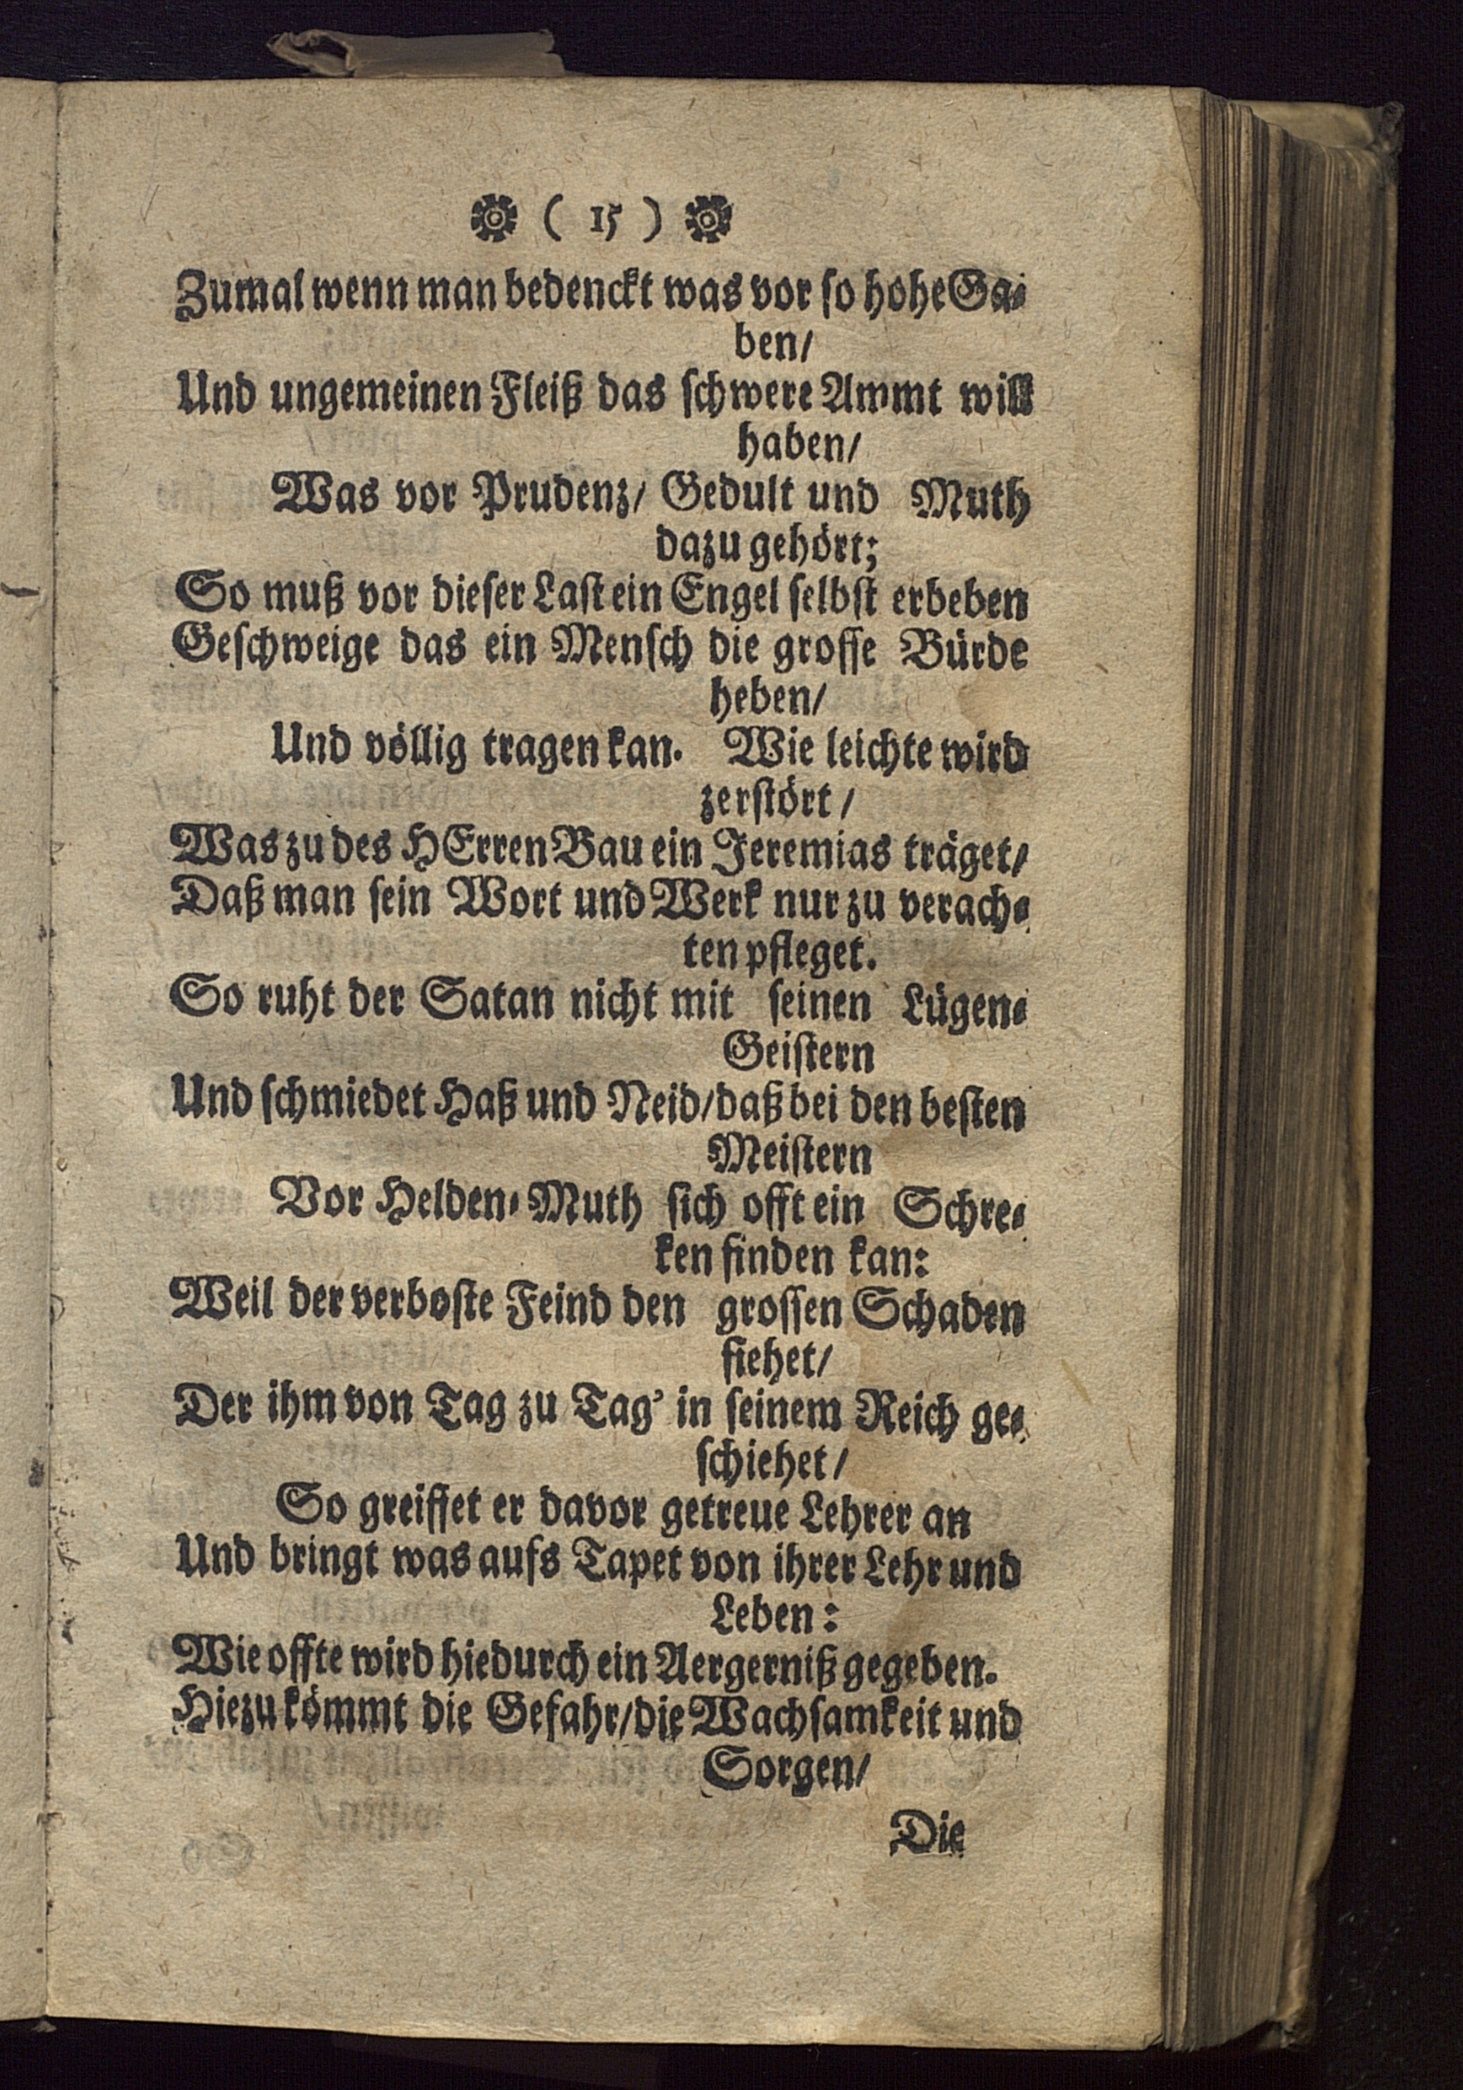 ( 15 )
Zumal wenn man bedenckt was vor so hohe Ga-
ben/
Und ungemeinen Fleiß das schwere Ammt will
haben/
Was vor Prudenz/ Gedult und Muth
dazu gehört;
So muß vor dieser Last ein Engel selbst erbeben
Geschweige das ein Mensch die grosse Bürde
heben/
Und völlig tragen kan. Wie leichte wird
zerstört/
Was zu des HErren Bau ein Jeremias träget/
Daß man sein Wort und Werk nur zu verach-
ten pfleget.
So ruht der Satan nicht mit seinen Lügen-
Geistern
Und schmiedet Haß und Neid/ daß bei den besten
Meistern
Vor Helden-Muth sich offt ein Schre-
ken finden kan:
Weil der verboste Feind den grossen Schaden
siehet/
Der ihm von Tag zu Tag' in seinem Reich ge-
schiehet/
So greiffet er davor getreue Lehrer an
Und bringt was aufs Tapet von ihrer Lehr und
Leben:
Wie offte wird hiedurch ein Aergerniß gegeben.
Hiezu kömmt die Gefahr/ die Wachsamkeit und
Sorgen/
Die